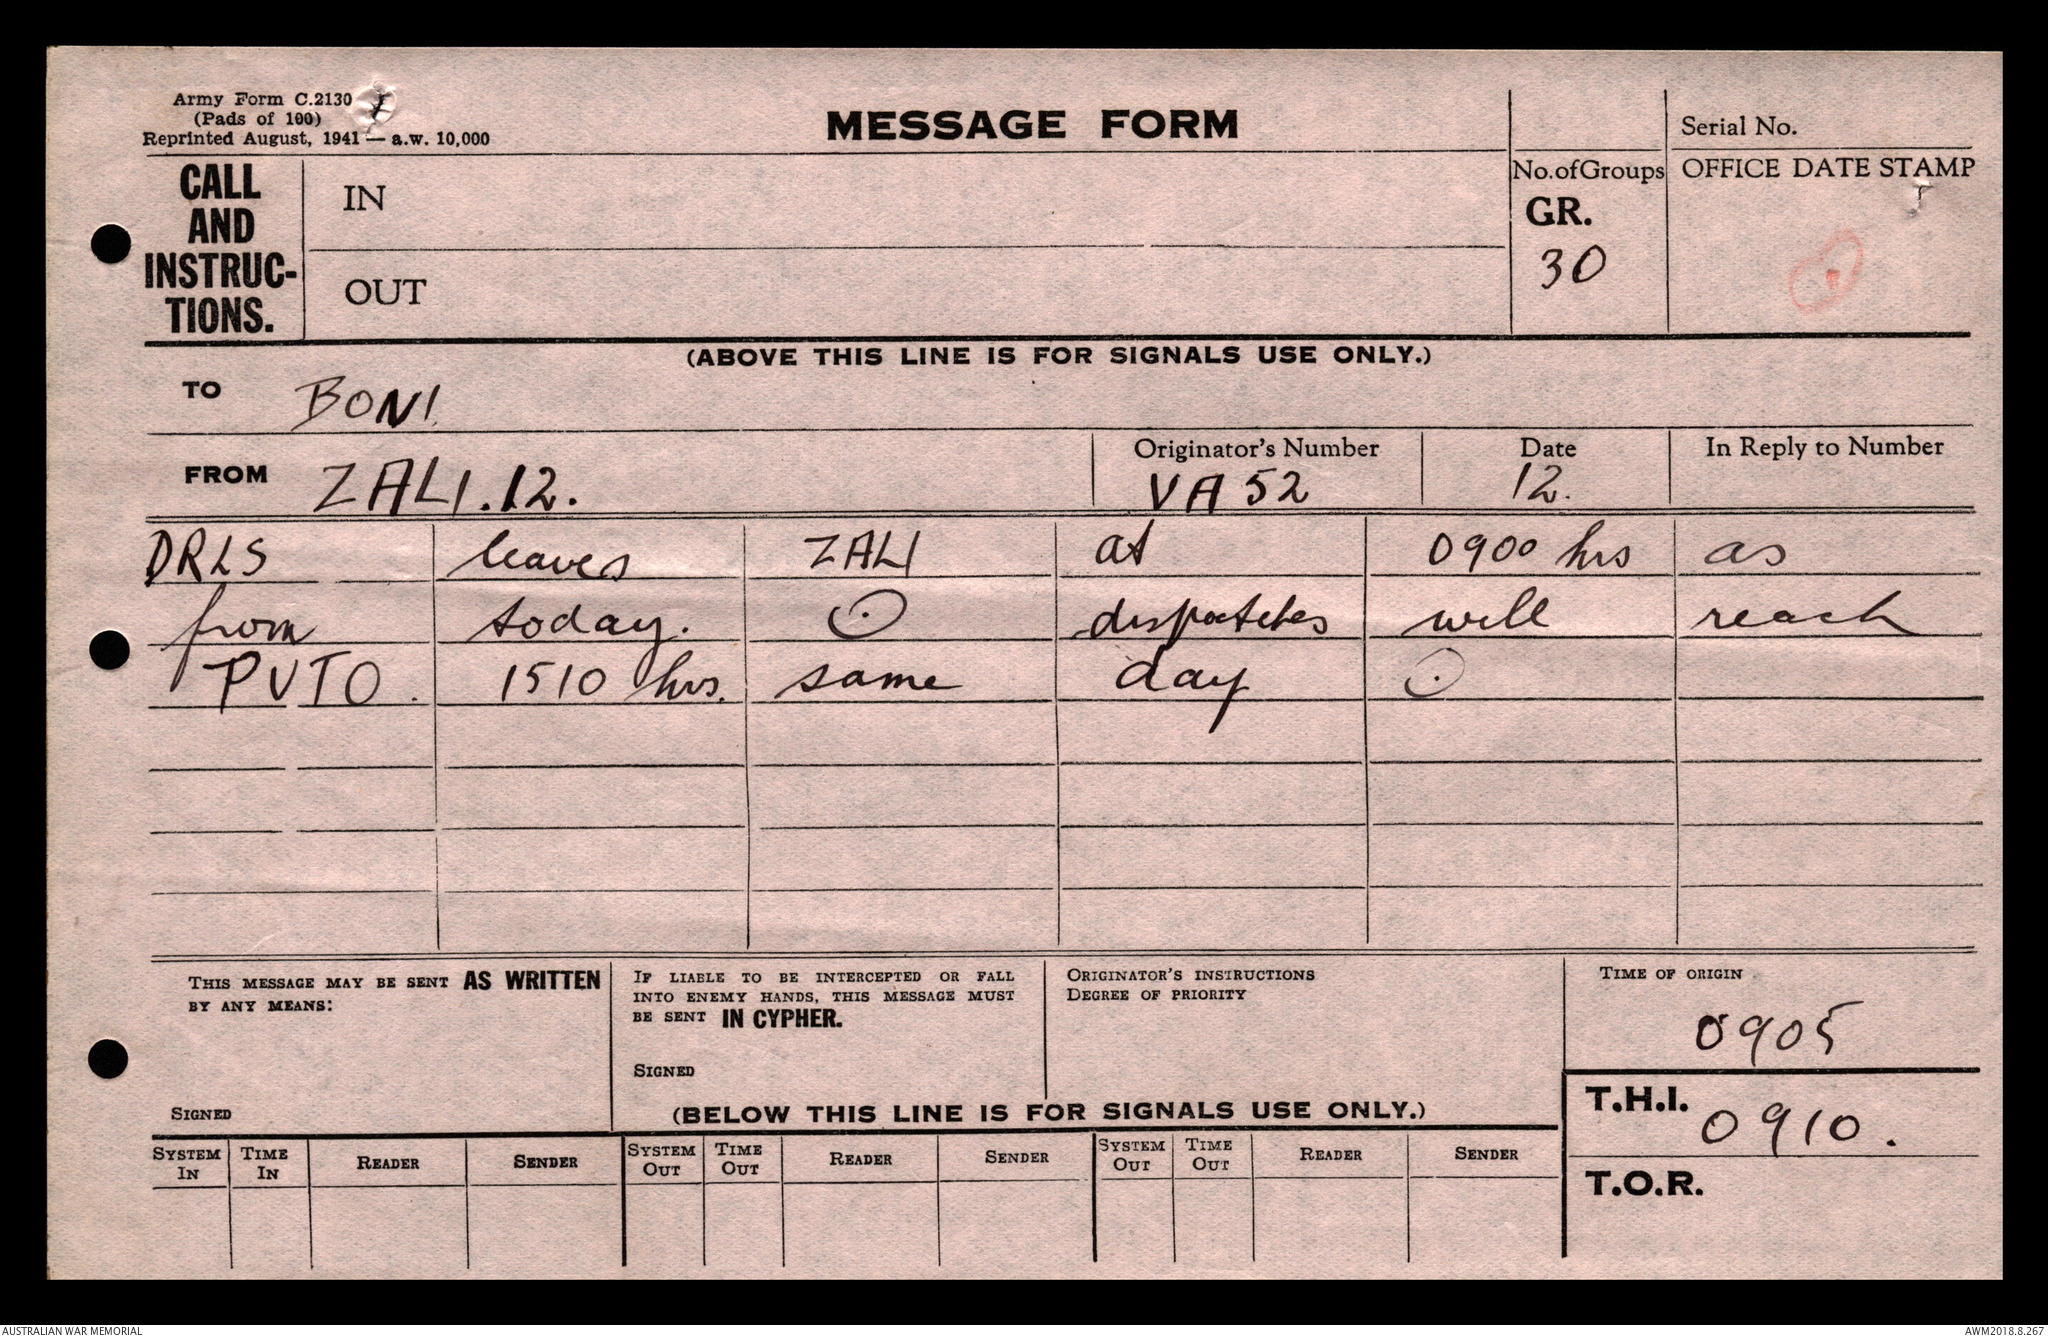 Army Form C.2130
(Pads of 100)
Reprinted August, 1941 — a.w. 10,000
MESSAGE FORM
Serial No.
CALL AND INSTRUC-TIONS.
IN
OUT
No. of Groups
GR.
30
OFFICE DATE STAMP
(ABOVE THIS LINE IS FOR SIGNALS USE ONLY.)
TO BONI
FROM ZALI.12.
Originator's Number
VA 52
Date
12.
In Reply to Number
DRLS leaves ZALI at 0900 hrs as
from today. ⊙ dispatches will reach
PVTO. 1510 hrs. same day ⊙
THIS MESSAGE MAY BE SENT AS WRITTEN
BY ANY MEANS:
SIGNED
IF LIABLE TO BE INTERCEPTED OR FALL
INTO ENEMY HANDS, THIS MESSAGE MUST
BE SENT IN CYPHER.
SIGNED
ORIGINATOR'S INSTRUCTIONS
DEGREE OF PRIORITY
TIME OF ORIGIN
0905
(BELOW THIS LINE IS FOR SIGNALS USE ONLY.)
T.H.I.
0910.
T.O.R.
SYSTEM IN TIME IN READER SENDER SYSTEM OUT TIME OUT READER SENDER SYSTEM OUT TIME OUT READER SENDER
AUSTRALIAN WAR MEMORIAL
AWM2018.8.267